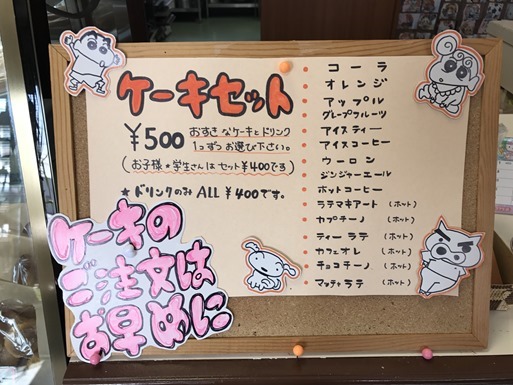 ケーキセット
¥500 おすきなケーキとドリンク
1つずつお選び下さい。
(お子様★学生さんはセット¥400です)
★ドリンクのみ ALL ¥400です。
ケーキの
ご注文は
お早めに
コーラ
オレンジ
アップル
グレープフルーツ
アイスティー
アイスコーヒー
ウーロン
ジンジャーエール
ホットコーヒー
ラテマキアート (ホット)
カプチーノ (ホット)
ティーラテ (ホット)
カフェオレ (ホット)
チョコチーノ (ホット)
マッチャラテ (ホット)